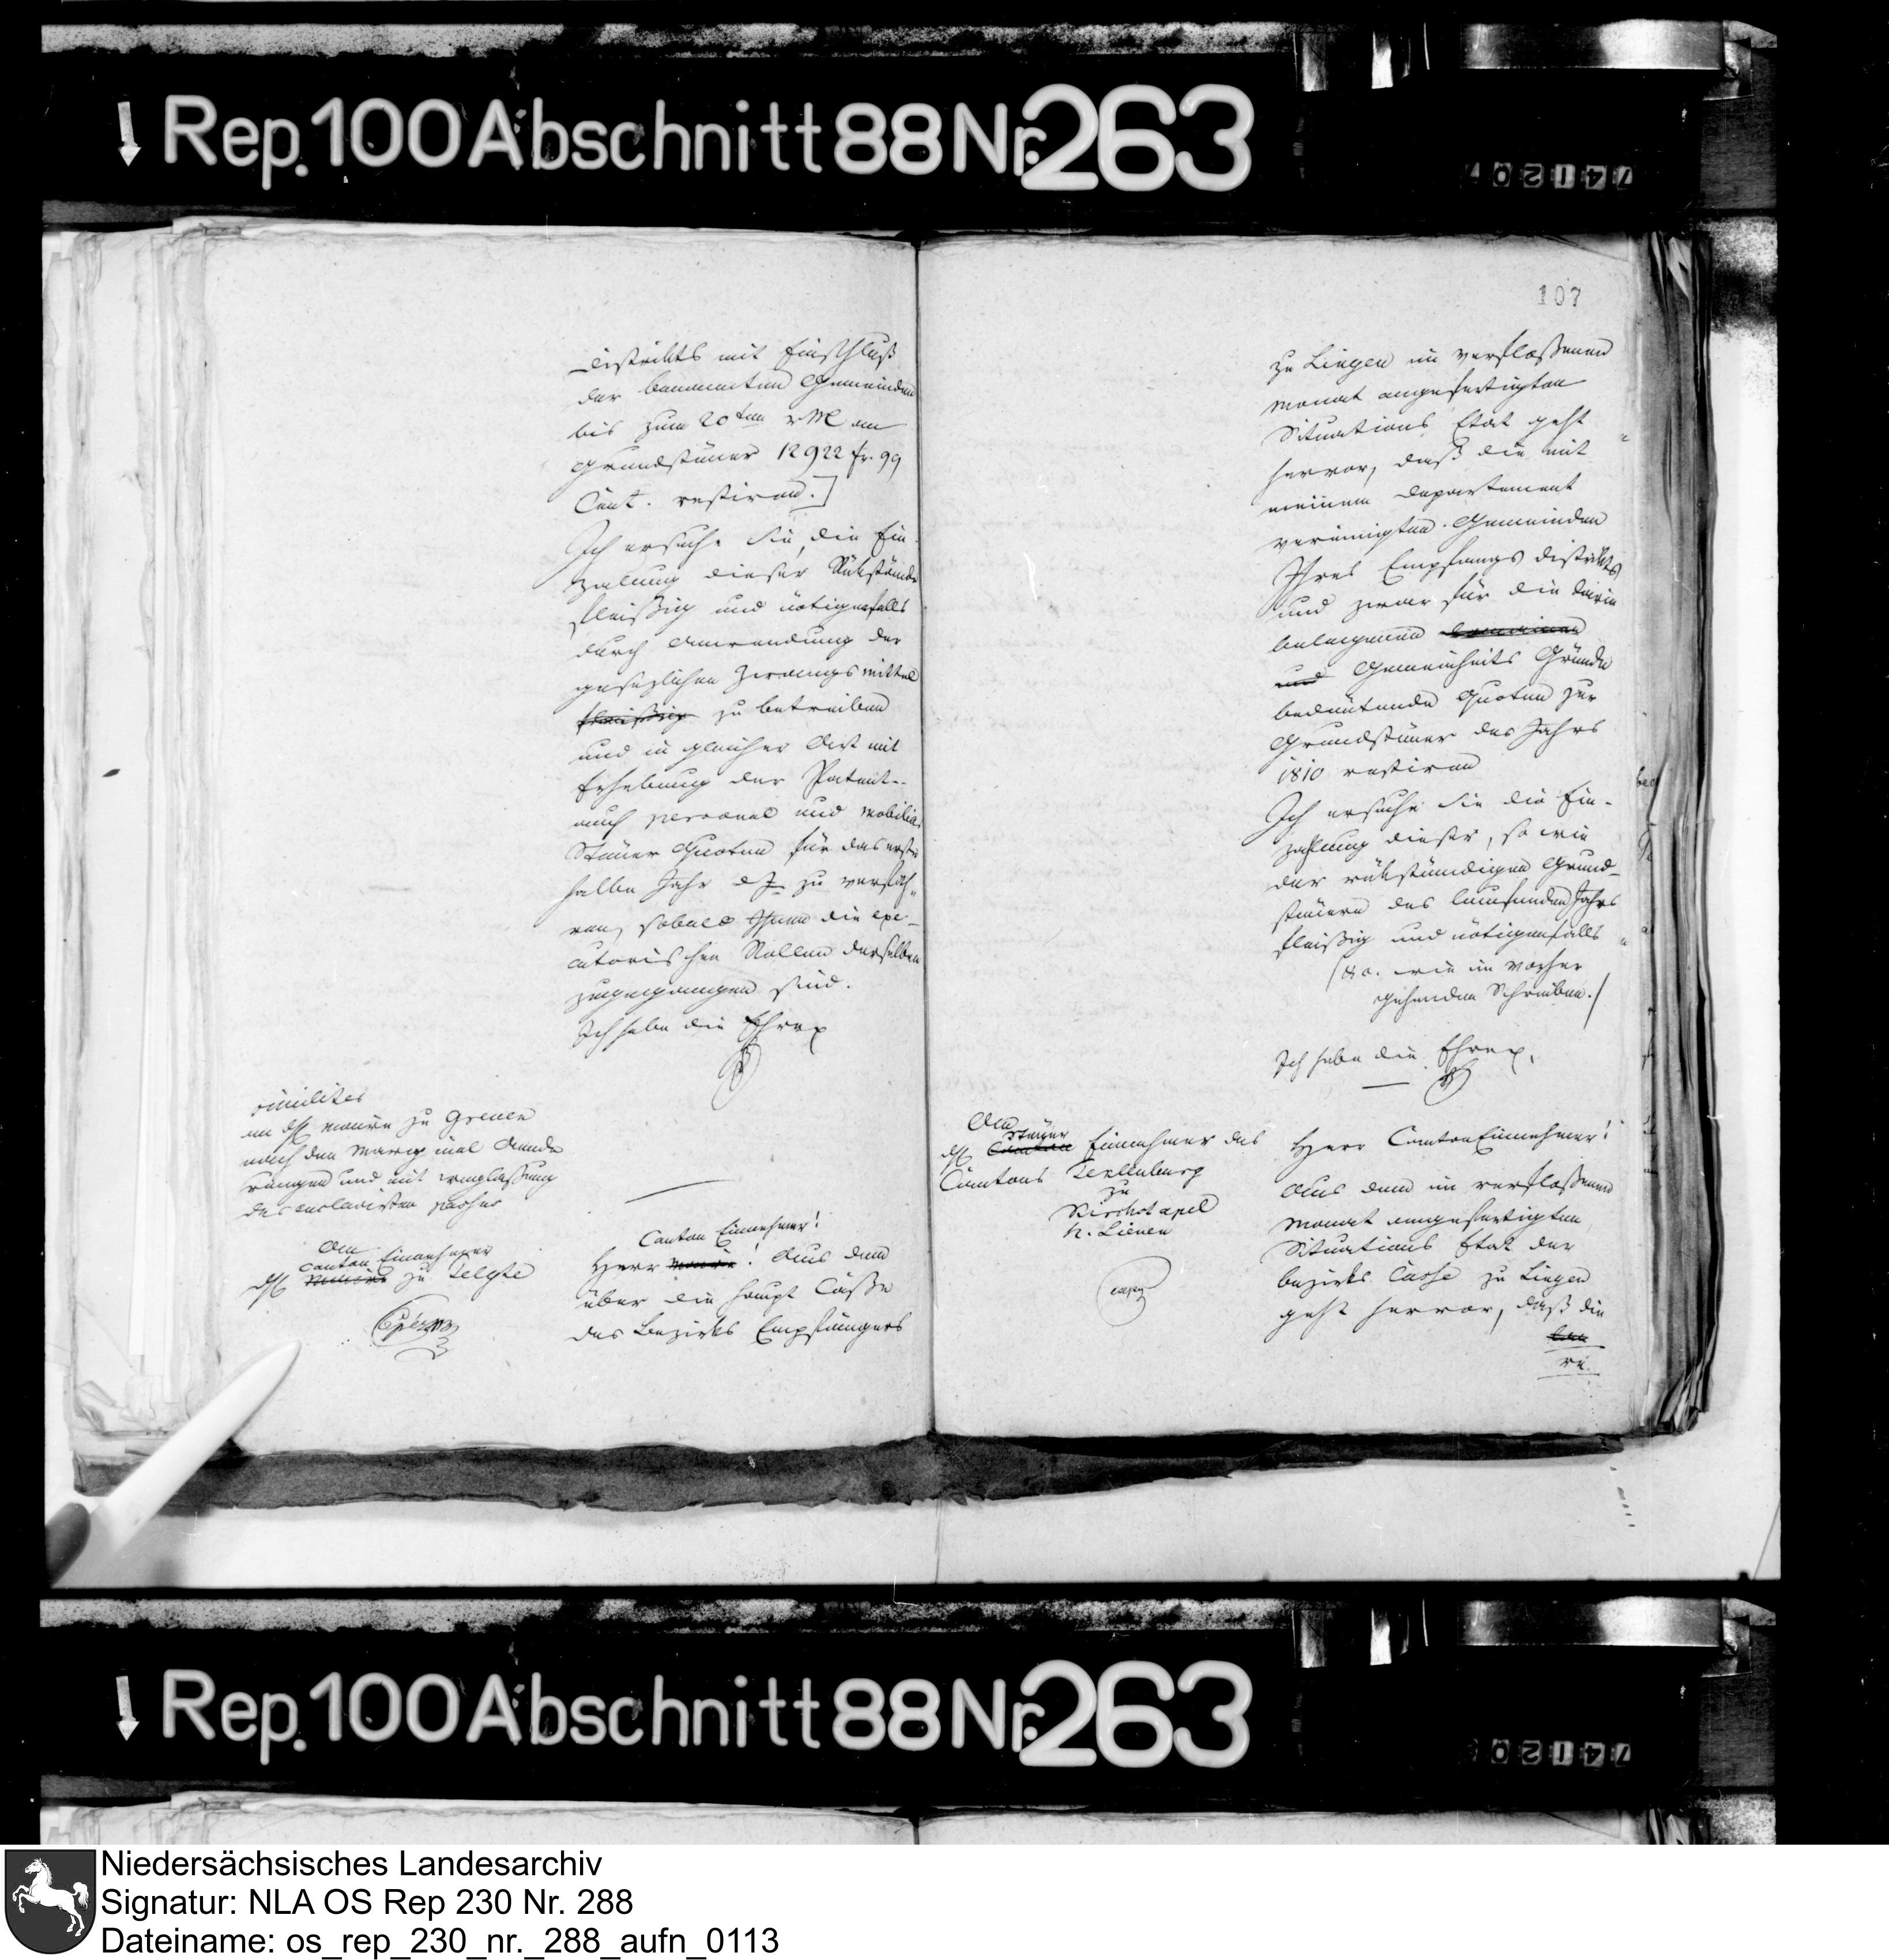 Rep. 100 Abschnitt 88 Nr. 263
741207
Districts mit Einschluß
der benannten Gemeinden
bis zum 20ten v M an
Grundsteuer 12922 fr. 99
Cent. restiren.]
Ich ersuche Sie, die Ein-
zalung dieser Rükstände
fleißig und nötigenfalls
durch Anwendung der
gesezlichen Zwangsmittel
fleißig zu betreiben
und in gleicher Art mit
Erhebung der Patent-
auch personal und mobiliar
Steuer Quoten für das erste
halbe Jahr d J zu verfah-
ren, sobald Ihnen die exe-
cutorischen Rollen derselben
zugegangen sind.
Ich habe die Ehre
similiter
an dH Maire zu Greven
nach den marginal Aende
rungen und mit Weglaßung
des enclavirten passus
An
Canton Einnehmer
dH Maire zu Telgte
Canton Einnehmer!
Herr Maire! Aus dem
über die Haupt Casse
des Bezirks Empfängers
107
zu Lingen im verfloßenen
Monat angefertigten
Situations Etat geht
hervor, daß die mit
meinem Departement
vereinigten Gemeinden
Ihres Empfangs districts
und zwar für die darin
belegenen Domainen
und Gemeinheits Gründe
bedeutende Quoten zur
Grundsteuer des Jahrs
1810 restiren
Ich ersuche Sie die Ein-
zahlung dieser, so wie
der rükständigen Grund-
steuern des laufenden Jahrs
fleißig und nötigenfalls
/ wie im vorher
gehenden Schreiben./
Ich habe die Ehre
An
Steuer
dH Canton Einnehmer des
Cantons Teklenburg
zu
Kirchstapel
n. Lienen
Herr Canton Einnehmer!
Aus dem im verfloßenen
Monat angefertigten
Situations Etat der
bezirks Casse zu Lingen
geht hervor, daß die
Rep. 100 Abschnitt 88 Nr. 263
741207
Niedersächsisches Landesarchiv
Signatur: NLA OS Rep 230 Nr. 288
Dateiname: os_rep_230_nr._288_aufn_0113